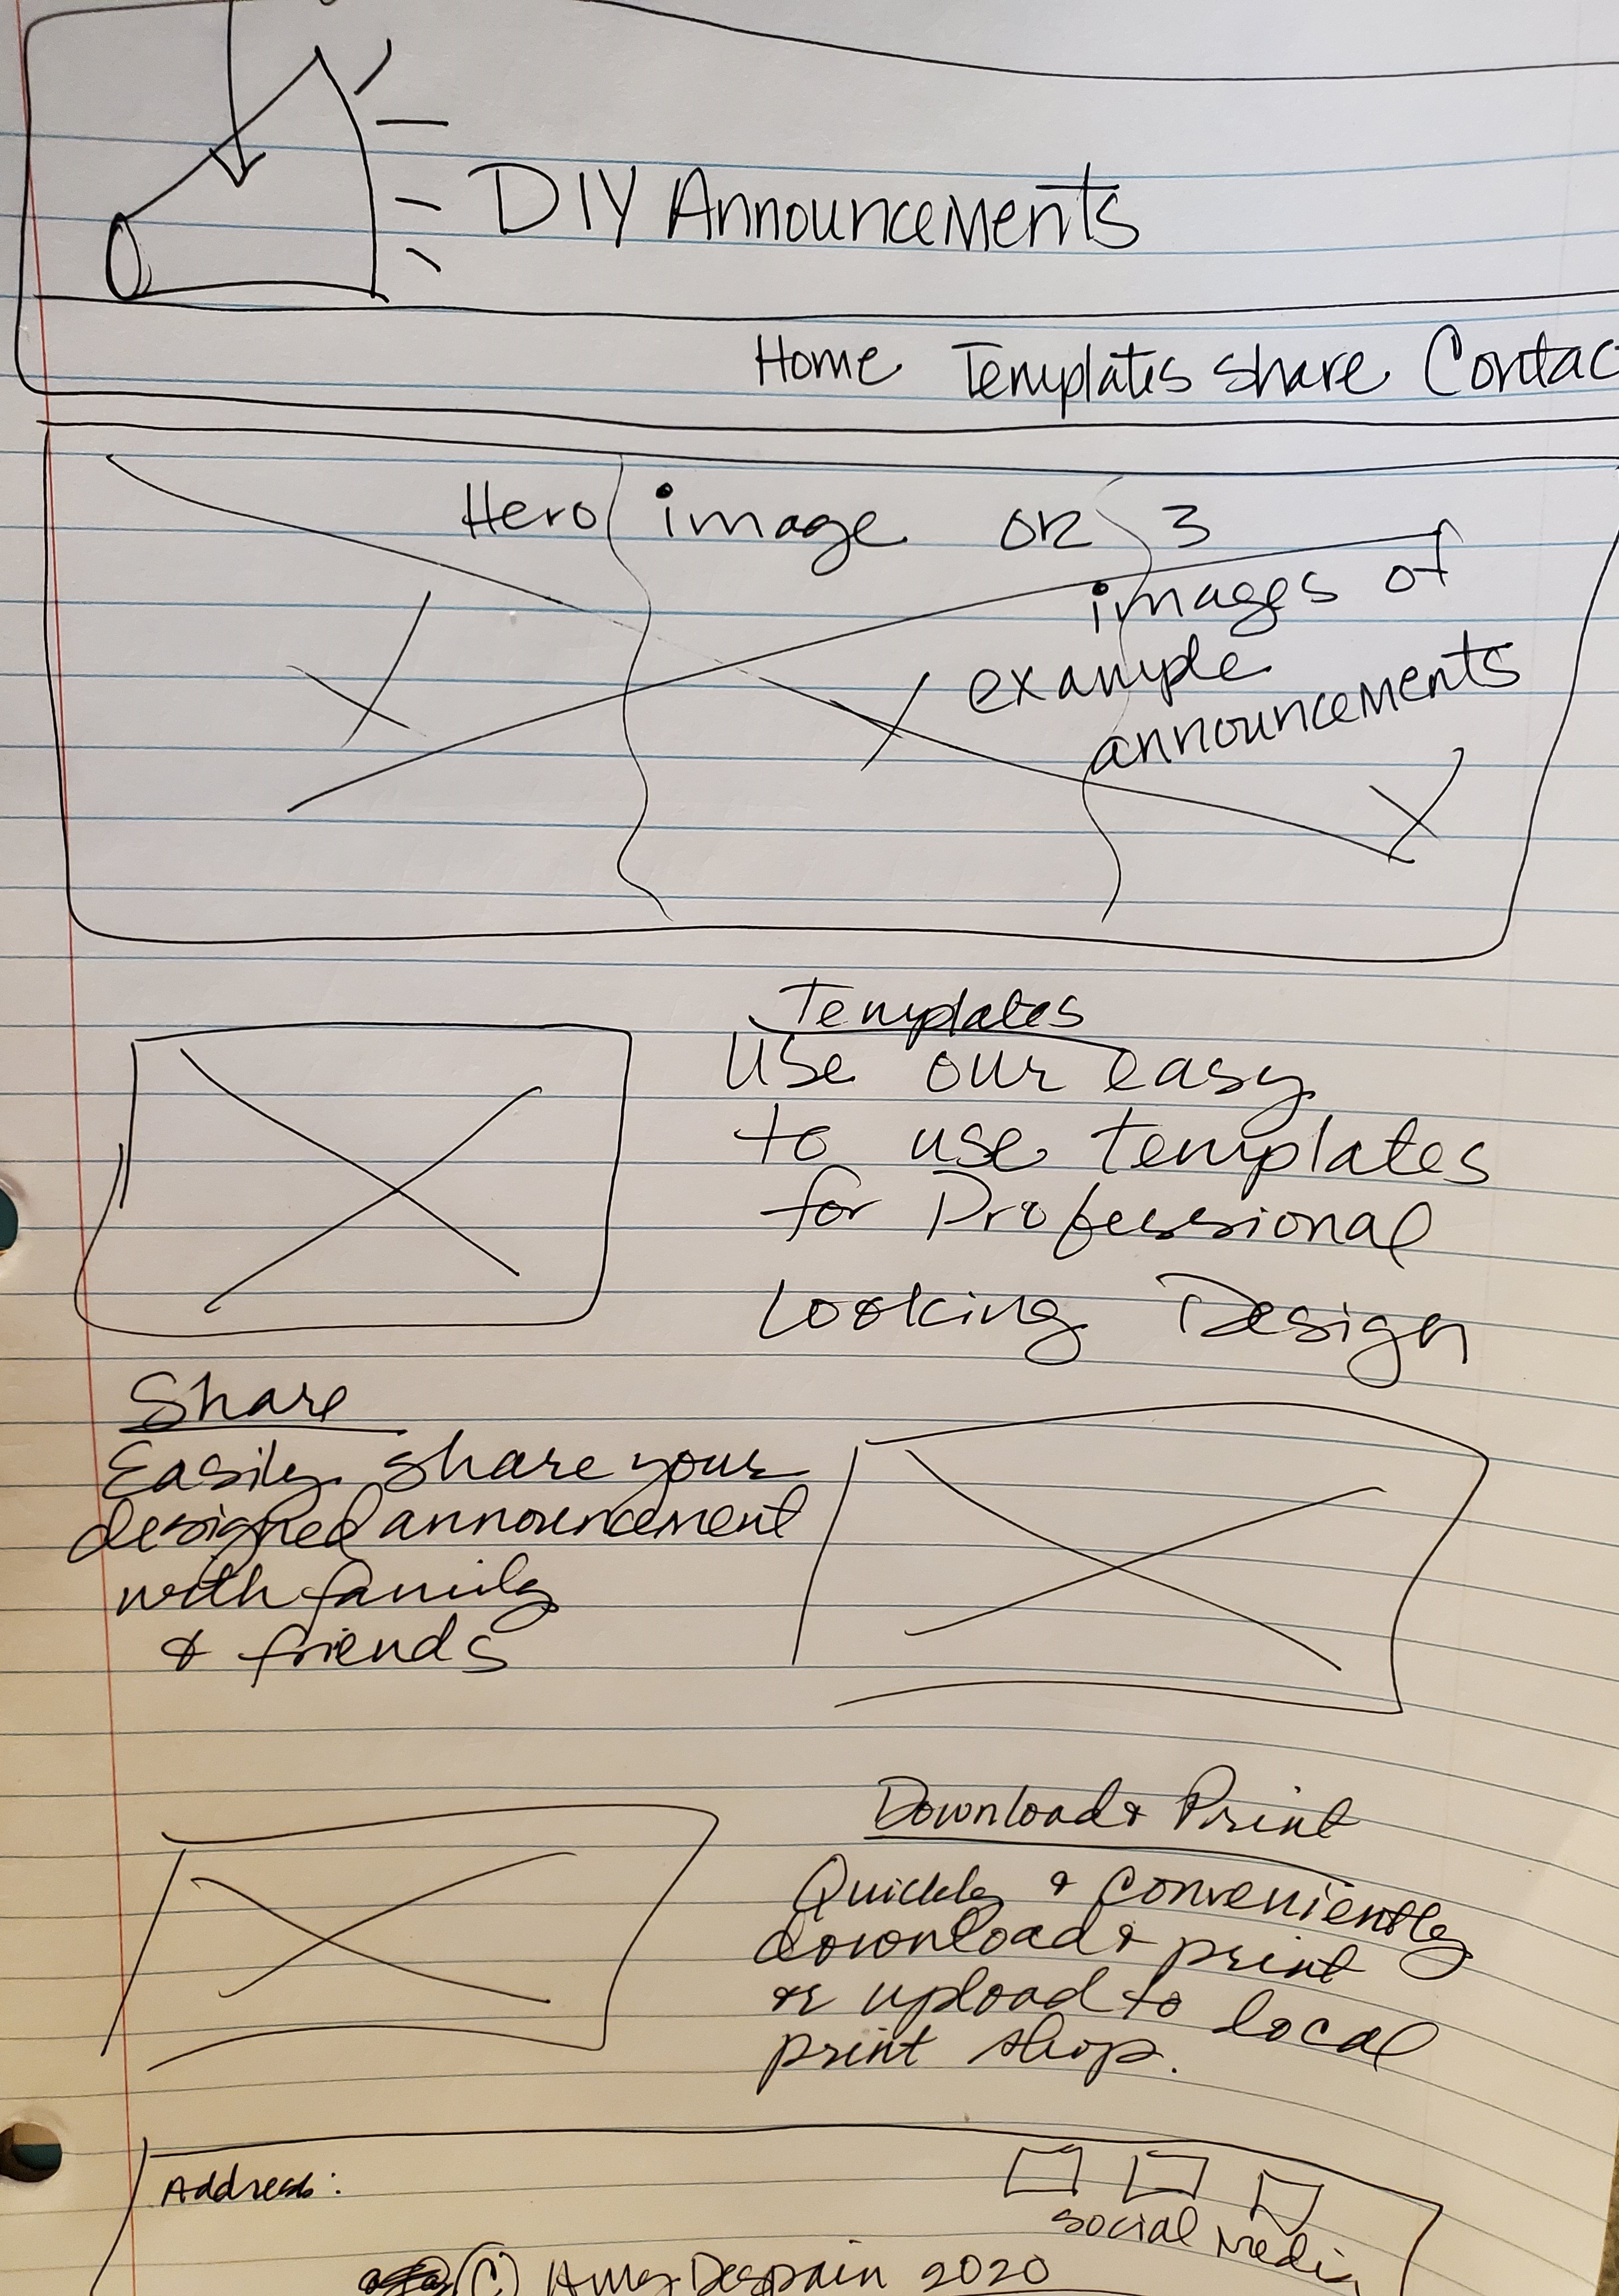 DIY Announcements
Home Templates Share Contac
Hero image or 3
images of
example
announcements
Templates
Use our easy
to use templates
for Professional
Looking Design
Share
Easily share your
designed announcement
with family
& friends
Download & Print
Quickly & conveniently
download & print
or upload to local
print shop.
Address:
social media
(C) Amy Despain 2020